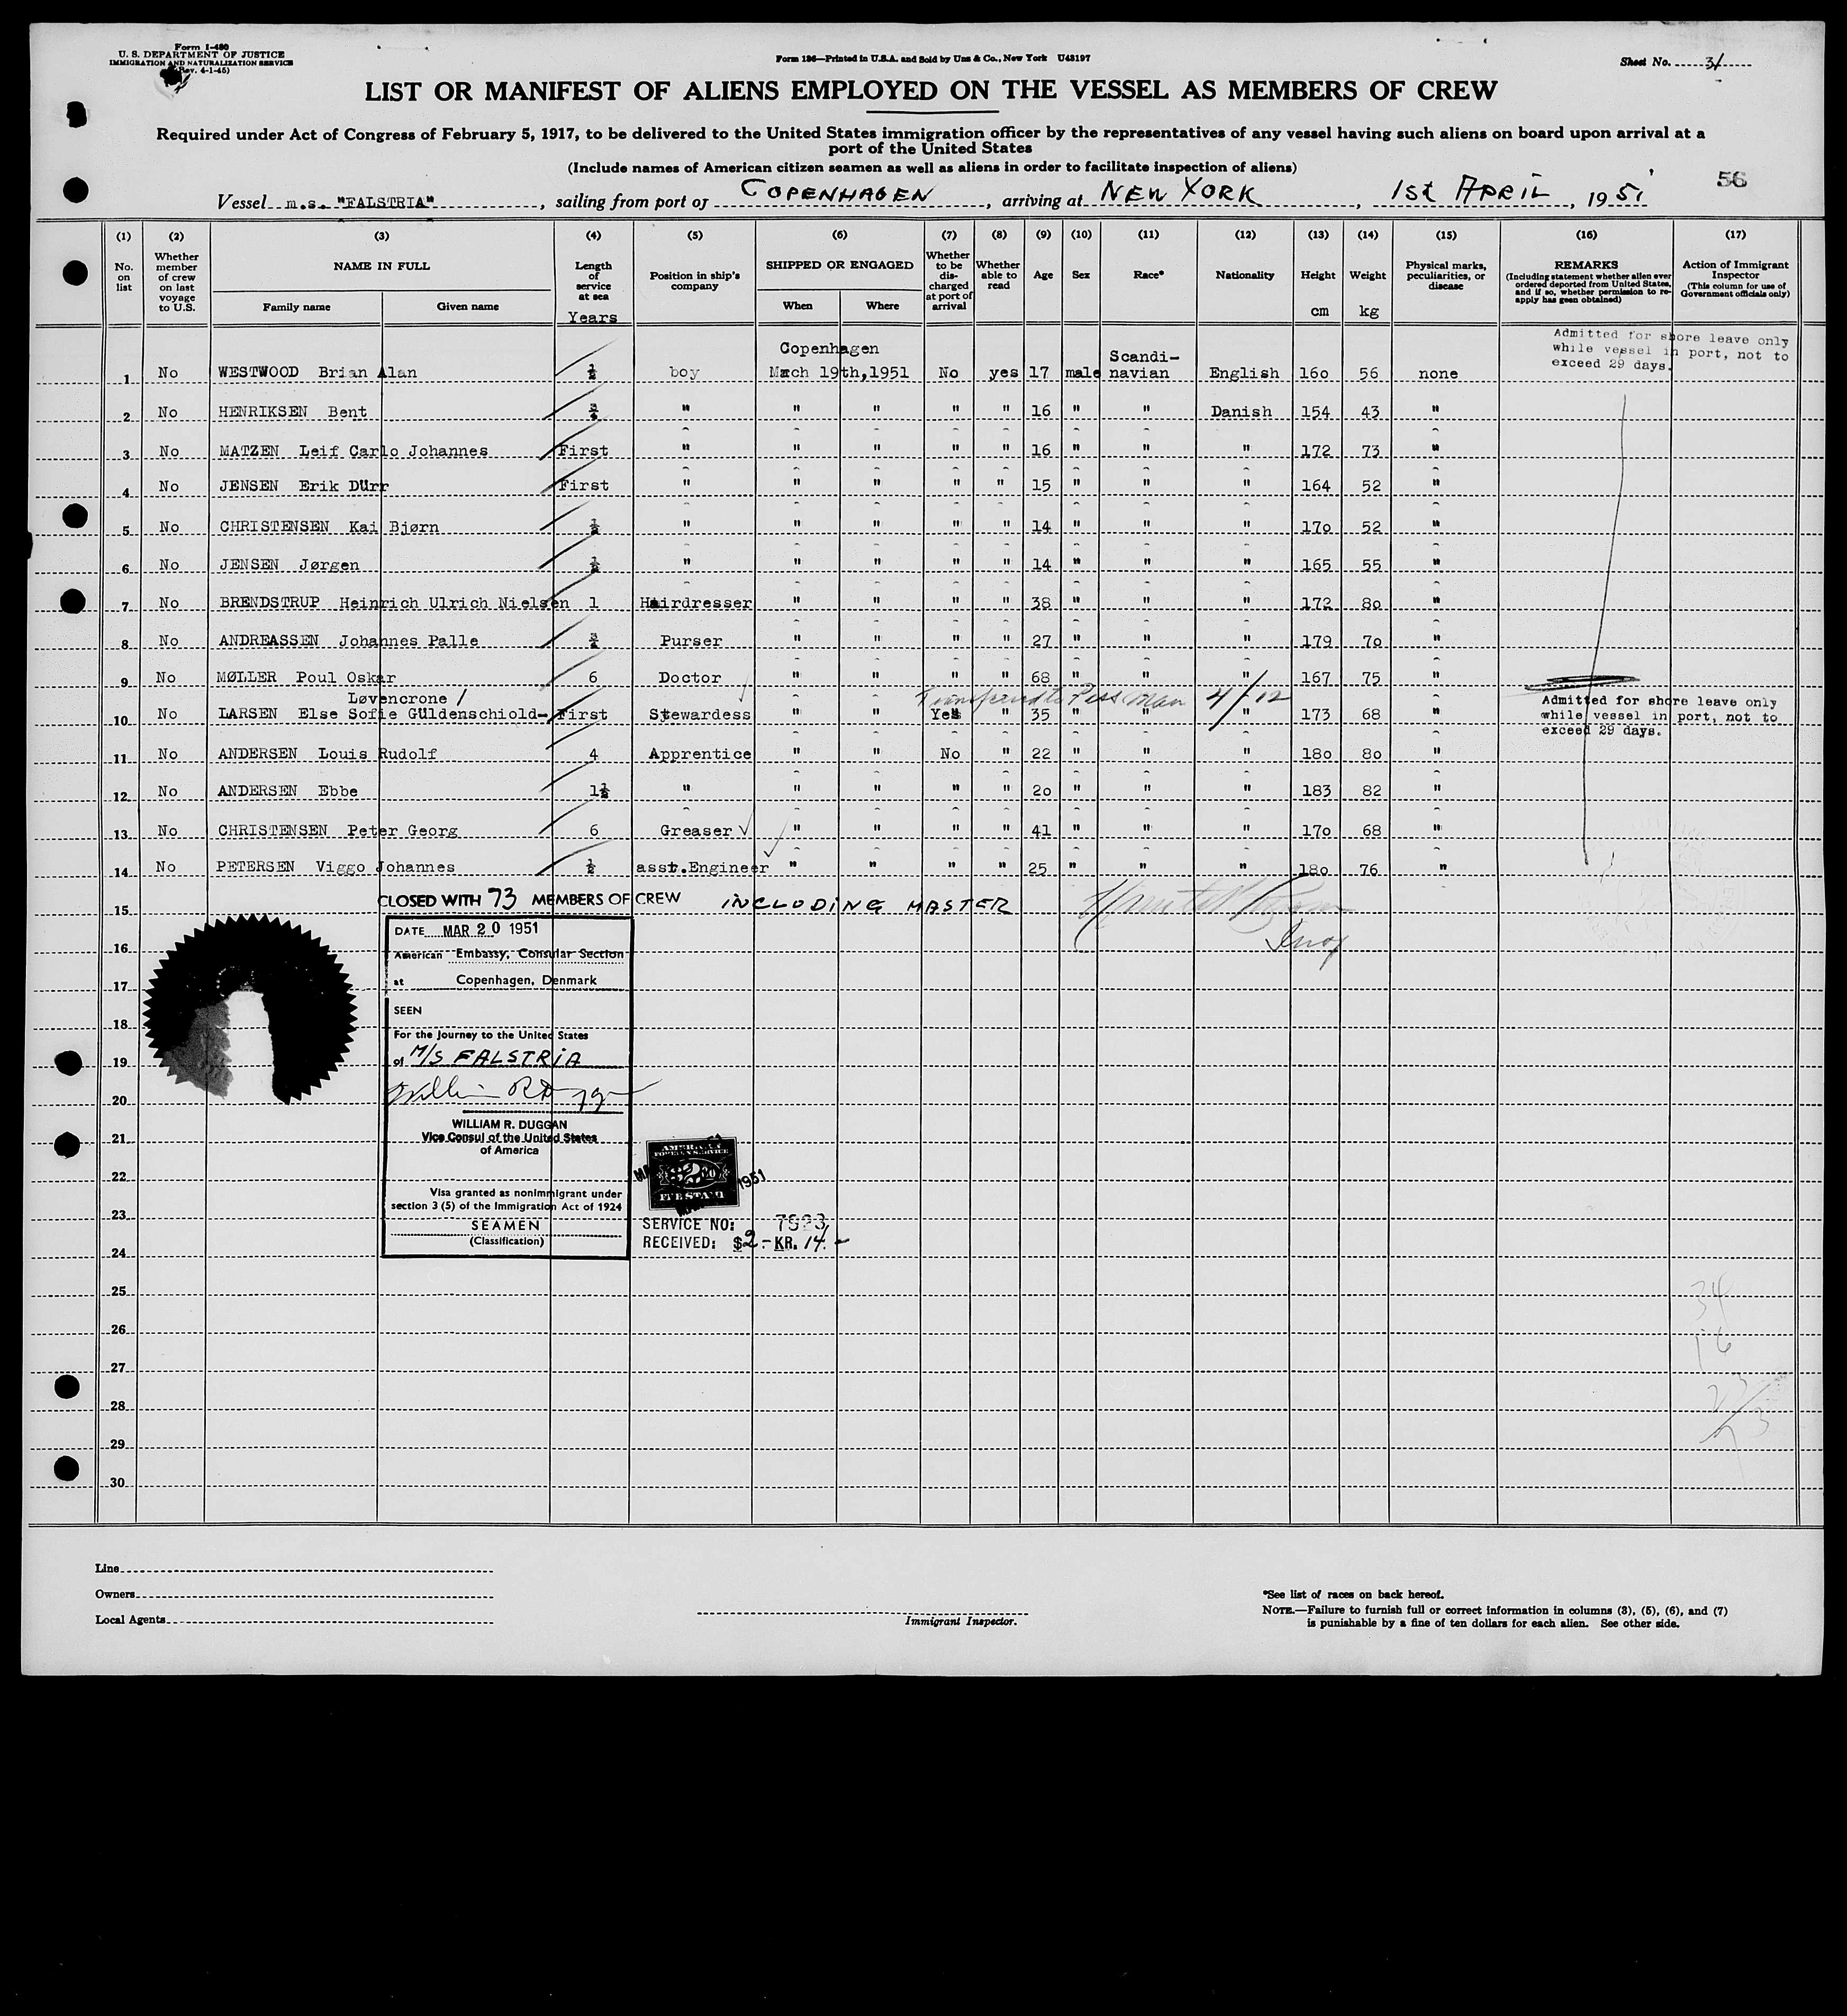 Form I-480
U. S. DEPARTMENT OF JUSTICE
IMMIGRATION AND NATURALIZATION SERVICE
(Rev. 4-1-45)
Form 136—Printed in U.S.A. and Sold by Unz & Co., New York U43197
Sheet No. 3/
LIST OR MANIFEST OF ALIENS EMPLOYED ON THE VESSEL AS MEMBERS OF CREW
Required under Act of Congress of February 5, 1917, to be delivered to the United States immigration officer by the representatives of any vessel having such aliens on board upon arrival at a
port of the United States
(Include names of American citizen seamen as well as aliens in order to facilitate inspection of aliens)
56
Vessel m.s. "FALSTRIA", sailing from port of COPENHAGEN, arriving at NEW YORK, 1st APRIL, 1951
(1) (2) (3) (4) (5) (6) (7) (8) (9) (10) (11) (12) (13) (14) (15) (16) (17)
No. on list
Whether member of crew on last voyage to U.S.
NAME IN FULL
Family name Given name
Length of service at sea
Years
Position in ship's company
SHIPPED OR ENGAGED
When Where
Whether to be discharged at port of arrival
Whether able to read
Age
Sex
Race*
Nationality
Height
cm
Weight
kg
Physical marks, peculiarities, or disease
REMARKS
(Including statement whether alien ever ordered deported from United States, and if so, whether permission to re-apply has been obtained)
Action of Immigrant Inspector
(This column for use of Government officials only)
Copenhagen
Admitted for shore leave only
while vessel in port, not to
exceed 29 days.
Scandi-
1 No WESTWOOD Brian Alan ½ boy March 19th,1951 No yes 17 male navian English 160 56 none
2 No HENRIKSEN Bent ¾ " " " " " 16 " " Danish 154 43 "
3 No MATZEN Leif Carlo Johannes First " " " " " 16 " " " 172 73 "
4 No JENSEN Erik Dürr First " " " " " 15 " " " 164 52 "
5 No CHRISTENSEN Kai Bjørn ½ " " " " " 14 " " " 170 52 "
6 No JENSEN Jørgen ½ " " " " " 14 " " " 165 55 "
7 No BRENDSTRUP Heinrich Ulrich Nielsen 1 Hairdresser " " " " 38 " " " 172 80 "
8 No ANDREASSEN Johannes Palle ¾ Purser " " " " 27 " " " 179 70 "
9 No MØLLER Poul Oskar 6 Doctor " " " " 68 " " " 167 75 "
Transferred to Pass Man 4/12
Løvencrone /
10 No LARSEN Else Sofie Güldenschiold- First Stewardess " " Yes " 35 " " " 173 68 "
Admitted for shore leave only
while vessel in port, not to
exceed 29 days.
11 No ANDERSEN Louis Rudolf 4 Apprentice " " No " 22 " " " 180 80 "
12 No ANDERSEN Ebbe 1½ " " " " " 20 " " " 183 82 "
13 No CHRISTENSEN Peter Georg 6 Greaser " " " " 41 " " " 170 68 "
14 No PETERSEN Viggo Johannes ½ asst.Engineer " " " " 25 " " " 180 76 "
CLOSED WITH 73 MEMBERS OF CREW INCLUDING MASTER
15
DATE MAR 20 1951
16
American Embassy, Consular Section
at Copenhagen, Denmark
17
SEEN
18
For the Journey to the United States
19
of M/S FALSTRIA
20
WILLIAM R. DUGGAN
21
Vice Consul of the United States
of America
22
Visa granted as nonimmigrant under
section 3 (5) of the Immigration Act of 1924
23
SEAMEN
(Classification)
24
AMERICAN
FOREIGN SERVICE
FEE STAMP
1951
SERVICE NO: 7523
RECEIVED: $2.- KR. 14.-
25
34
26
16
27
28
29
30
Line
Owners
Local Agents
Immigrant Inspector.
*See list of races on back hereof.
NOTE.—Failure to furnish full or correct information in columns (3), (5), (6), and (7)
is punishable by a fine of ten dollars for each alien. See other side.